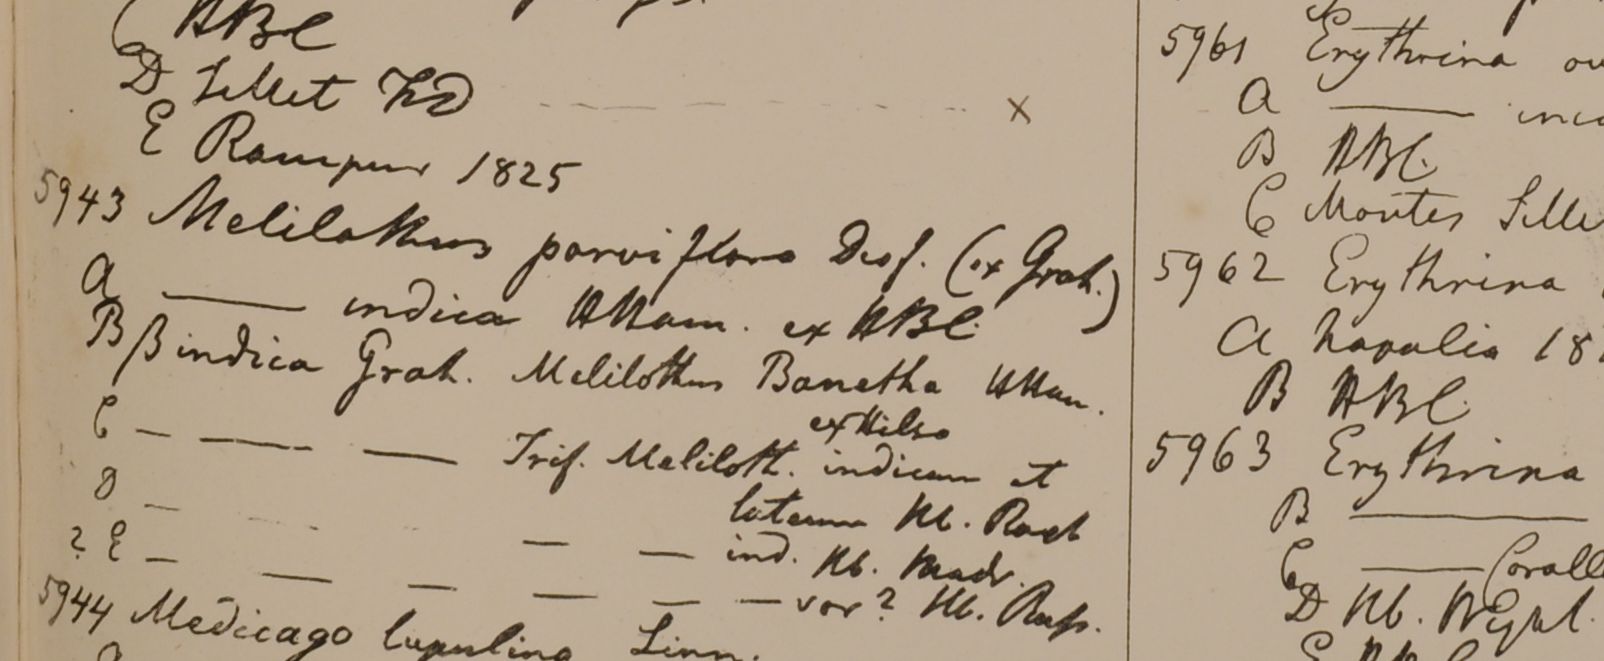 C HBC
D Sillet FD x
E Rampur 1825
5943 Melilothus parviflora Desf. (ex Grah.)
A —— indica HHam. ex HBC
B β indica Grah. Melilothus Banetha HHam.
C — —— —— Trif. Meliloth. indicum et
luteum Hb. Roxb
D — — — — — ind. Hb. Madr.
? E — — — — — — var? Hb. Russ.
5944 Medicago lupulina Linn.
5961 Erythrina
A ——
B HBC.
C Montes Sille
5962 Erythrina
A Napalia 18
B HBC.
5963 Erythrina
B ——
C —— Corall
D Hb. Wight.
E